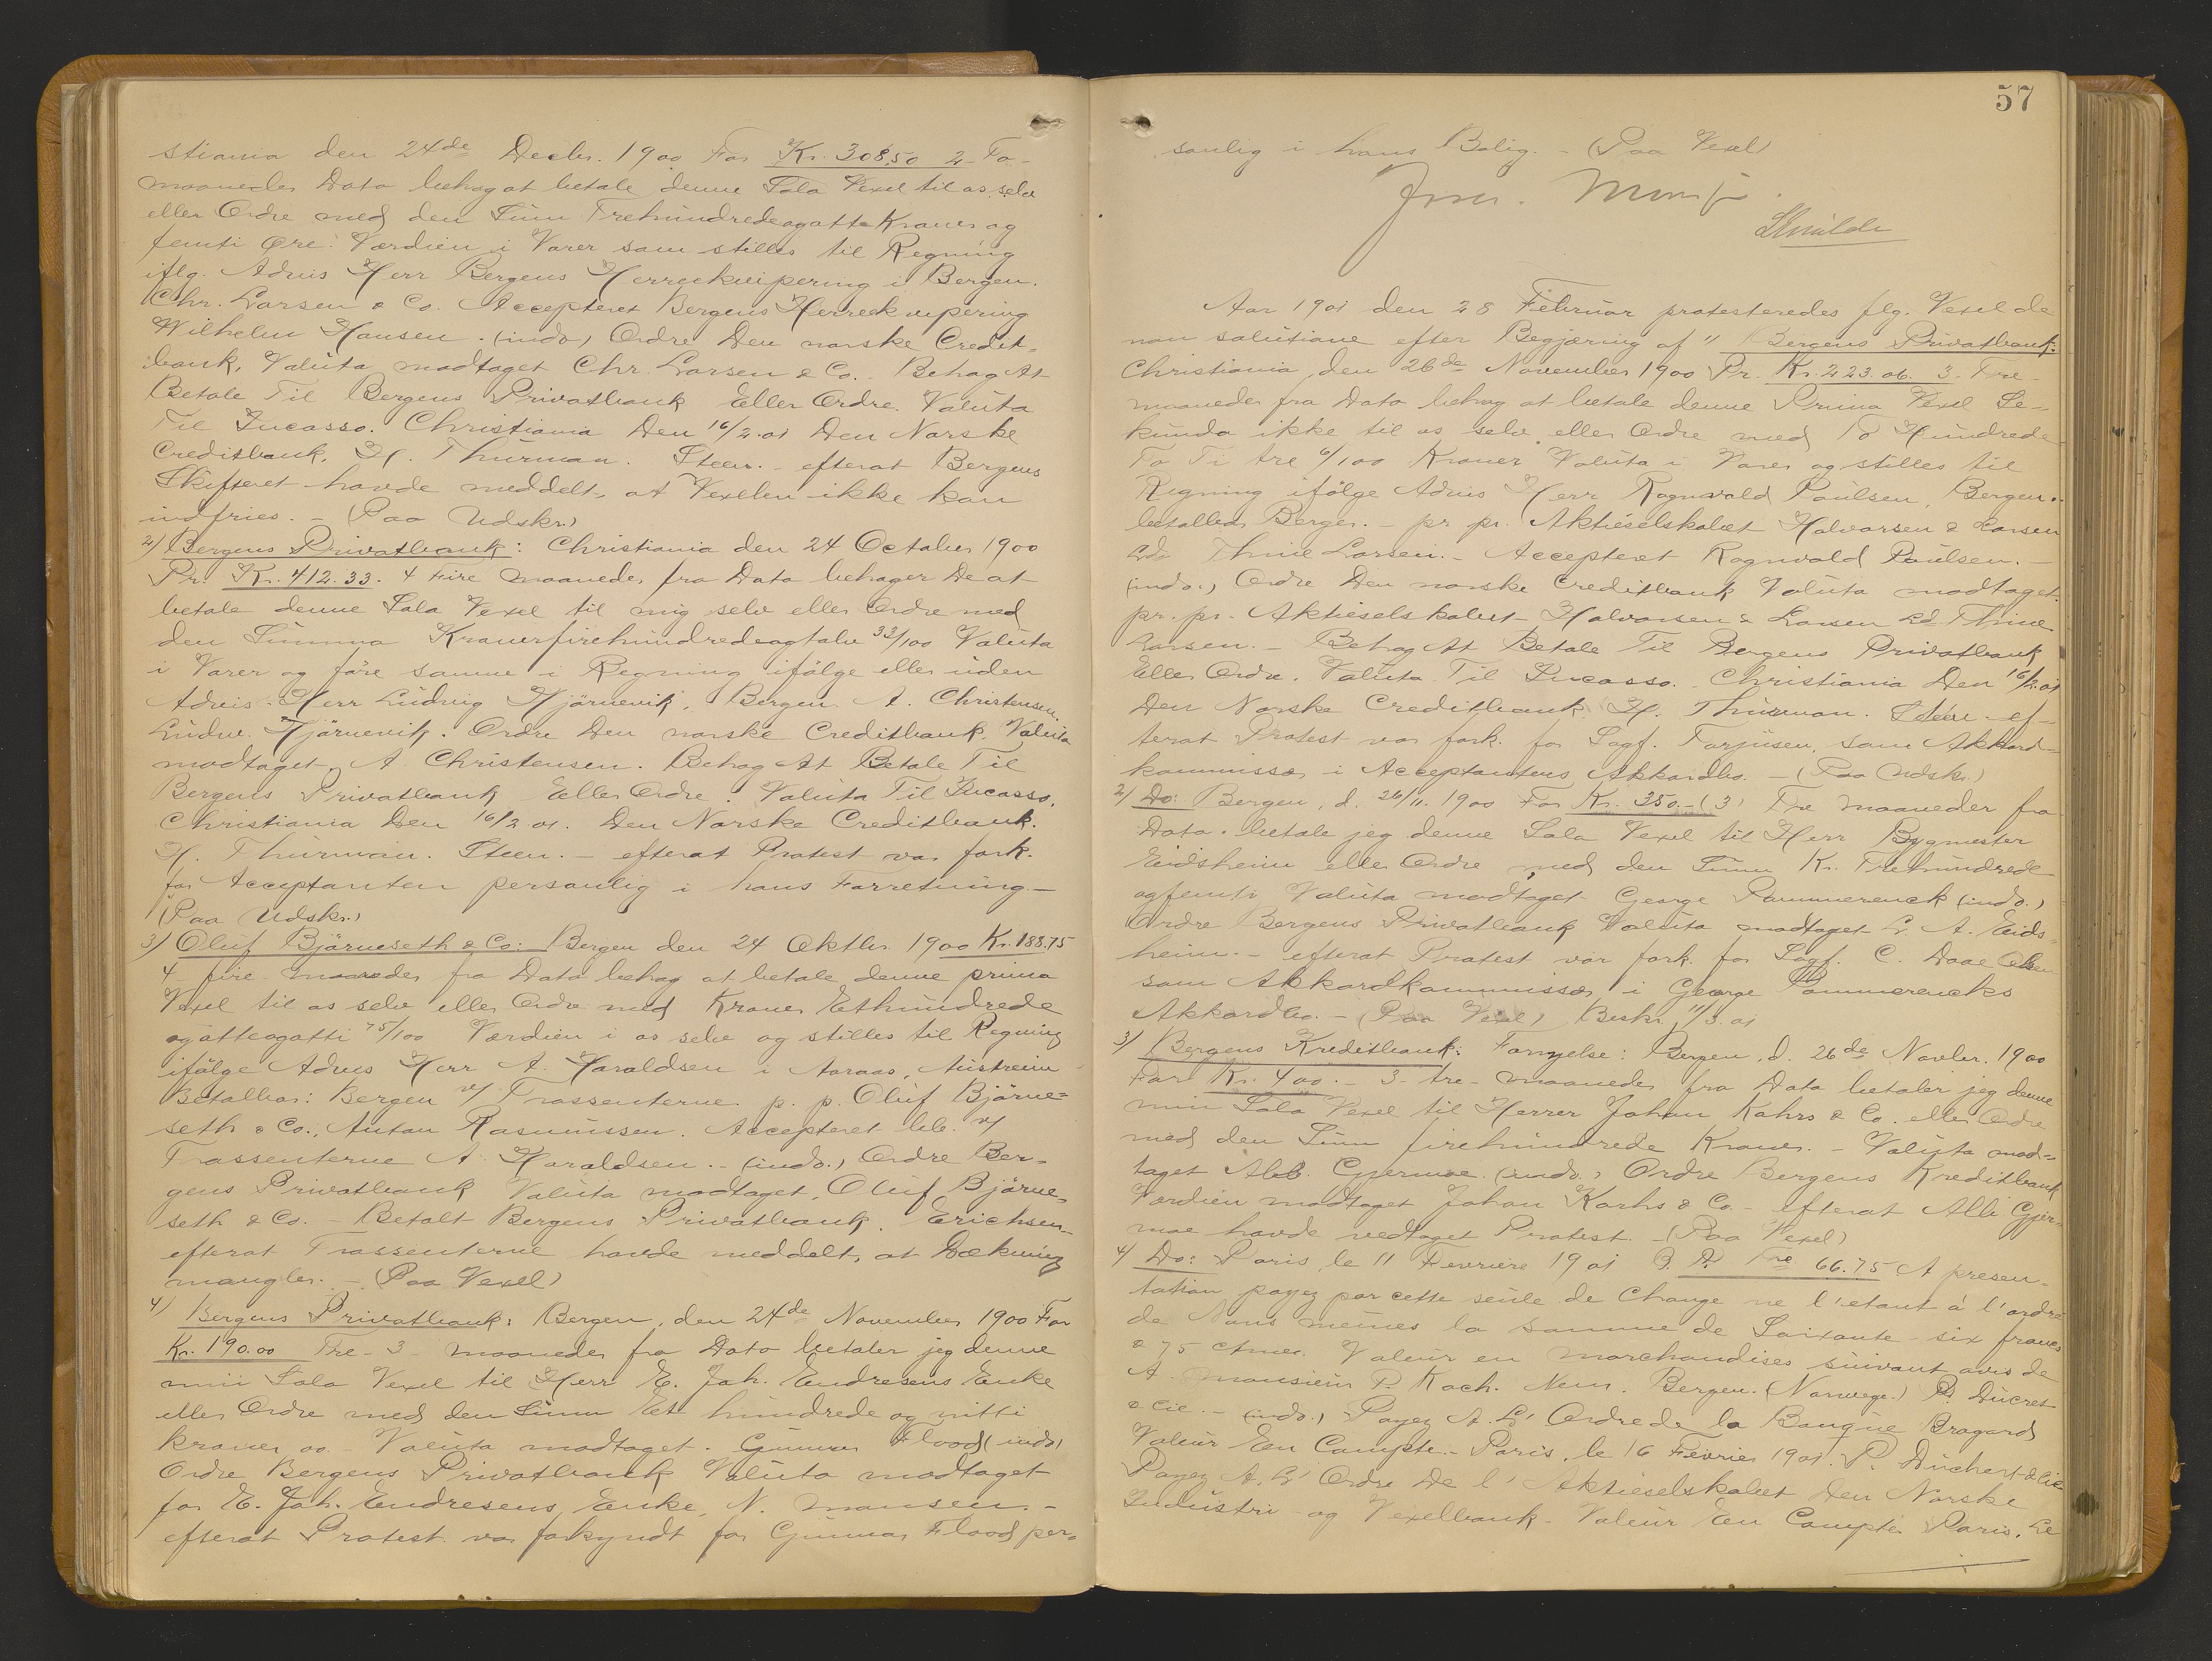 stiania den 24de Decbr. 1900 For Kr. 308,50 2 To
maaneder Dato behag at betale denne Sola Vexel til os selv
eller Ordre med den Sum Trehundredeogotte Kroner og
femti Øre. Værdien i Varer som stilles til Regning
iflg. Advis Herr Bergens Herreekvipering i Bergen.
Chr. Larsen & Co. Accepteret Bergens Herreekvipering
Wilhelm Hansen. (indo.) Ordre Den norske Credit-
bank, Valuta modtaget Chr. Larsen & Co. Behag At
Betale Til Bergens Privatbank Eller Ordre. Valuta
Til Incasso. Christiania Den 16/2.01 Den Norske
Creditbank, H. Thurman. Steen. - efterat Bergens
Skifteret havde meddelt, at Vexelen ikke kan
indfries. - (Paa Udskr.)
2) Bergens Privatbank: Christiania den 24 October 1900
Pr. Kr. 412.33. 4 Fire Maaneder fra Dato behager De at
betale denne Sola Vexel til mig selv eller Ordre med
den Summa Kronerfirehundredeogtolv 33/100 Valuta
i Varer og före samme i Regning ifölge eller uden
Advis. Herr Ludvig Hjörnevik, Bergen A. Christensen.
Ludv. Hjörnevik. Ordre Den norske Creditbank, Valuta
modtaget A. Christensen. Behag At Betale Til
Bergens Privatbank Eller Ordre. Valuta Til Incasso.
Christiania Den 16/2 01. Den Norske Creditbank.
H. Thurman. Steen. - efterat Protest var fork.
for Acceptanten personlig i hans Forretning. -
(Paa Udskr.)
3) Oluf Björneseth & Co: Bergen den 24 Oktbr. 1900 Kr. 188.75
4 fire maaneder fra Dato behag at betale denne prima
Vexel til os selv eller Ordre med Kroner Ethundrede
og otteogotti 75/100 Værdien i os selv og stilles til Regning
ifölge Advis Herr A. Haraldsen i Aaraas, Austrheim
Betalbar: Bergen v/ Trassenterne p. p. Oluf Björne=
seth & Co., Anton Rasmussen. Accepteret btb. v/
Trassenterne A. Haraldsen. - (indo.) Ordre Ber-
gens Privatbank Valuta modtaget, Oluf Björne-
seth & Co. - Betalt Bergens Privatbank. Erichsen -
efterat Trassenterne havde meddelt, at Dækning
mangler. - (Paa Vexel)
4) Bergens Privatbank: Bergen, den 24de November 1900 For
Kr. 190.00 Tre - 3 - maaneder fra Dato betaler jeg denne
min Sola Vexel til Herr E. Joh. Endresens Enke
eller Ordre med den Sum Et hundrede og nitti
kroner oo - Valuta modtaget. Gunnar Flood (indo)
Ordre Bergens Privatbank Valuta modtaget
for E. Joh. Endresens Enke, N. Monsen. -
efterat Protest var forkyndt for Gunnar Flood per=
57
sonlig i hans Bolig. - (Paa Vexel)
Aar 1901 den 28 Februar protesteredes flg. Vexel de
non solutione efter Begjæring af " Bergens Privatbank:
Christiania, den 26de November 1900 Pr. Kr. 223.06. 3 - Tre -
maaneder fra Dato behag at betale denne Prima Vexel Se-
kunda ikke til os selv eller Ordre med To Hundrede
To Ti tre 6/100 Kroner Valuta i Varer og stilles til
Regning ifölge Advis Herr Ragnvald Paulsen, Bergen.
betalbar Bergen. - pr pr. Aktieselskabet Halvorsen & Larsen
Ld. Thine Larsen. - Accepteret Ragnvald Paulsen. -
(indo.) Ordre Den norske Creditbank Valuta modtaget.
pr. pr. Aktieselskabet Halvorsen & Larsen Ld Thine
Larsen. - Behag At Betale Til Bergens Privatbank
Eller Ordre. Valuta Til Incasso. Christiania Den 16/2.01
Den Norske Creditbank. H. Thurman. Steen - ef-
terat Protest var fork. for Sagf. Torjusen, som Akkord-
kommissær i Acceptantens Akkordbo. - (Paa Udskr.)
2) Do: Bergen, d. 26/11. 1900 For Kr. 350.- (3) Tre Maaneder fra
Dato. betale jeg denne Sola Vexel til Herr Bygmester
Eidsheim eller Ordre med den Sum Kr. Trehundrede
ogfemti Valuta modtaget George Pommerenck (indo.)
Ordre Bergens Privatbank Valuta modtaget L. A. Eids=
heim. - efterat Protest var fork. for Sagf. C. Daae Olsen
som Akkordkommissær i George Pommerencks
Akkordbo. - (Paa Vexel) Beskr. 11/3.01
3) Bergens Kreditbank: Fornyelse: Bergen, d. 26de Novbr. 1900
For Kr. 400.- 3 - tre - maaneder fra Dato betaler jeg denne
min Sola Vexel til Herrer Johan Kahrs & Co. eller Ordre
med den Sum firehundrede Kroner. - Valuta mod=
taget Alb. Gjermoe. (indo.) Ordre Bergens Kreditbank
Værdien modtaget Johan Karhs & Co. - efterat Alb Gjer-
moe havde vedtaget Protest. - (Paa Vexel)
4) Do: Paris, le 11 Fevriere 1901 B. P. Frs 66.75 A presen-
tation payez par cette seule de Change ne l'etant à l'ordre
de Nous memes la somme de Soixante - six francs
& 75 ctmes. Valeur en marchandises suivant avis de
A. Monsieur P. Koch. Bergen. (Norwege.) P. Ducret
& Cie. - (indo.) Payez A. L' Ordre de la Banque Bragard
Valeur En Compte. - Paris, le 16 Fevrier 1901. P. Duchert & Cie
Payez A. L' Ordre De l' Aktieselskabet Den Norske
Industri - og Vexelbank - Valeur En Compte Paris. Le